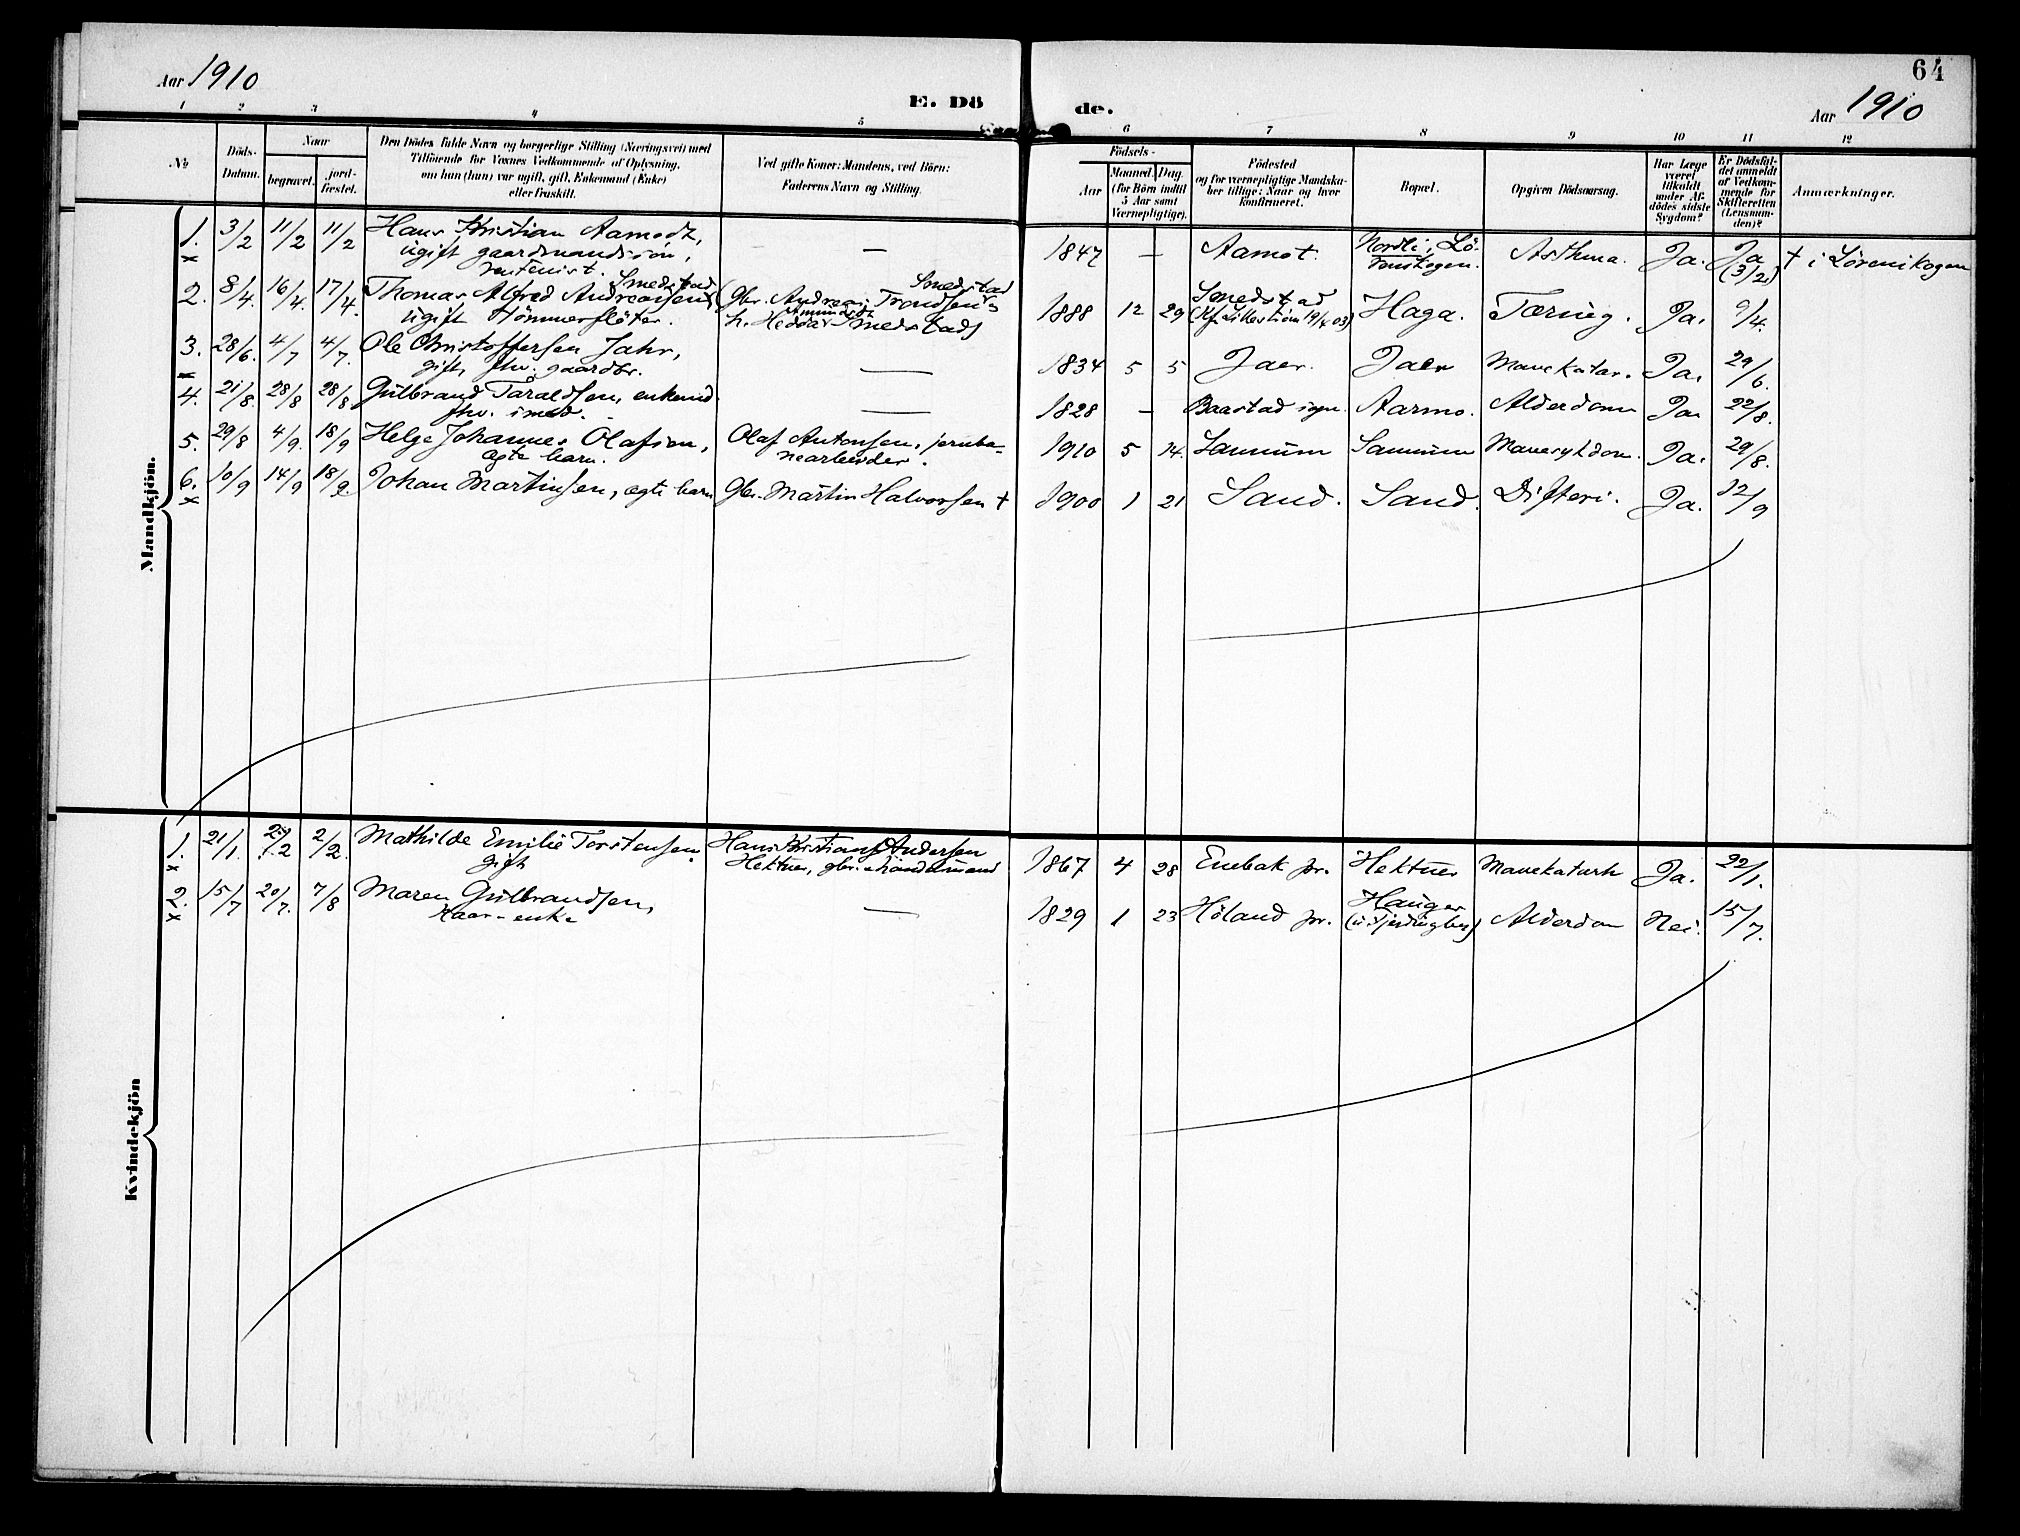 64
Aar 1910
E. Dö de.
Aar 1910
1 2 3 4 5 6 7 8 9 10 11 12
No
Döds-
Datum.
Naar
begravet.
jord-
fæstet.
Den Dödes fulde Navn og borgerlige Stilling (Næringsvei) med
Tilföiende for Voxnes Vedkommende af Oplysning,
om han (hun) var ugift, gift, Enkemand (Enke)
eller fraskilt.
Ved gifte Koner: Mandens, ved Börn:
Faderens Navn og Stilling.
Födsels-
Aar
Maaned. Dag.
(for Börn indtil
5 Aar samt
Værnepligtige).
Födested
og for værnepligtige Mandska-
ber tillige: Naar og hvor
konfirmeret.
Bopæl.
Opgiven Dödsaarsag.
Har Læge
været
tilkaldt
under Af-
dödes sidste
Sygdom?
Er Dödsfal-
det anmeldt
af Vedkom-
mende for
Skifteretten
(Lensman-
den)?
Anmærkninger.
Mandkjön.
1. 3/2 11/2 11/2 Hans Kristian Aamodt, — 1847 — Aamot. Nordli, Lö- Asthma. Ja. Ja † i Lörenskogen
x ugift gaardmandssön, renskogen. (3/2)
rentenist.
Smedstad Smedstad
2. 8/4. 16/4. 17/4. Thomas Alfred Andreassen Gbr. Andreas Trondsen 1888 12 29 Smedstad Haga. Tæring. Ja. 9/4.
ugift Tömmerflöter. h. Hedda Smedstad (Kf. Lillestöm 19/4 03)
3. 28/6. 4/7 4/7. Ole Christoffersen Jahr, — 1834 5 5 Jaer. Jaer Mavekatar. Ja. 29/6.
gift, fhv. gaardbr.
4. 21/8. 28/8 28/8 Gulbrand Taraldsen, enkemd. — 1828 — Baastad sgn. Aarmo. Alderdom Ja. 22/8.
fhv. smed.
5. 29/8 4/9. 18/9 Helge Johannes Olafsen, Olaf Antonsen, jernba- 1910 5 14. Sannum Sannum Mavesykdom. Ja. 29/8.
ægte barn. nearbeider.
6. 10/9 14/9 18/9. Johan Martinsen, ægte barn Gbr. Martin Halvorsen † 1900 1 21 Sand. Sand. Difteri. Ja. 12/9
x
Kvindekjön
1. 21/1. 2/2. Mathilde Emilie Torstensen Hans Kristian Andersen 1867 4 28 Enebak pr. Hektner Mavekatarh Ja. 22/1.
x gift Hektner, gbr. &
2. 15/7 20/7. 7/8 Maren Gulbrandsen, — 1829 1 23 Höland pr. Hauger Alderdom Nei. 15/7.
x Kaar-enke